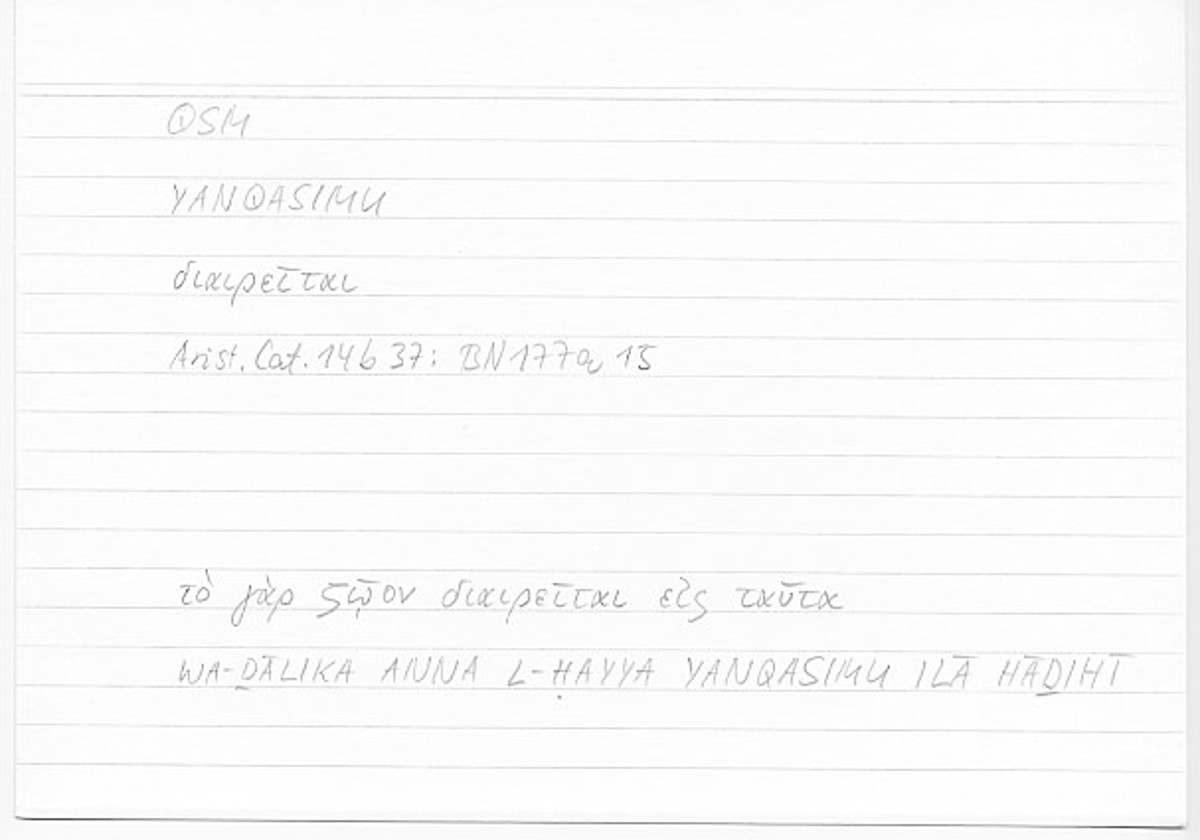 QSM
YANQASIMU
διαιρεῖται
Arist. Cat. 14b 37: BN 177a 15
τὸ γὰρ ζῷον διαιρεῖται εἰς ταῦτα
WA-ḎĀLIKA ANNA L-ḤAYYA YANQASIMU ILĀ HĀḎIHĪ